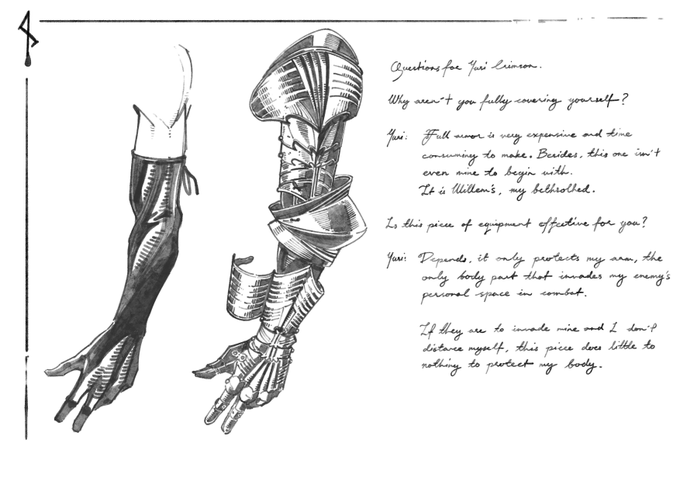 Questions for Yuri Crimson.
Why aren't you fully covering yourself?
Yuri: Full armor is very expensive and time
consuming to make. Besides, this one isn't
even mine to begin with.
It is Willem's, my bethrothed.
Is this piece of equipment effective for you?
Yuri: Depends, it only protects my arm, the
only body part that invades my enemy's
personal space in combat.
If they are to invade mine and I don't
distance myself, this piece does little to
nothing to protect my body.